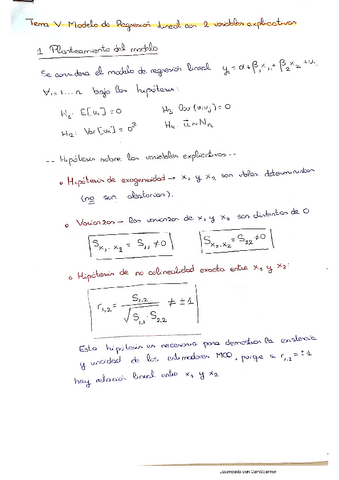 Tema V Modelo de Regresión lineal con 2 variables explicativas
1. Planteamiento del modelo
Se considera el modelo de regresión lineal yᵢ = α + β₁x₁ᵢ + β₂x₂ᵢ + uᵢ
∀i = 1...n bajo las hipótesis:
H₁: E[uᵢ] = 0 H₃ Cov(uᵢ,uⱼ) = 0
H₂: Var[uᵢ] = σ² H₄ ū ~ Nₙ
-- Hipótesis sobre las variables explicativas --
• Hipótesis de exogeneidad → x₁ y x₂ son vbles. deterministas
(no son aleatorias).
• Varianzas → las varianzas de x₁ y x₂ son distintas de 0
Sx₁,x₂ = S₁,₁ ≠ 0 Sx₂,x₂ = S₂₂ ≠ 0
• Hipótesis de no colinealidad exacta entre x₁ y x₂:
r₁,₂ = S₁,₂ / √(S₁,₁ · S₂,₂) ≠ ±1
Esta hipótesis es necesaria para demostrar la existencia
y unicidad de los estimadores MCO, porque si r₁,₂ = ±1
hay relación lineal entre x₁ y x₂
Escaneado con CamScanner